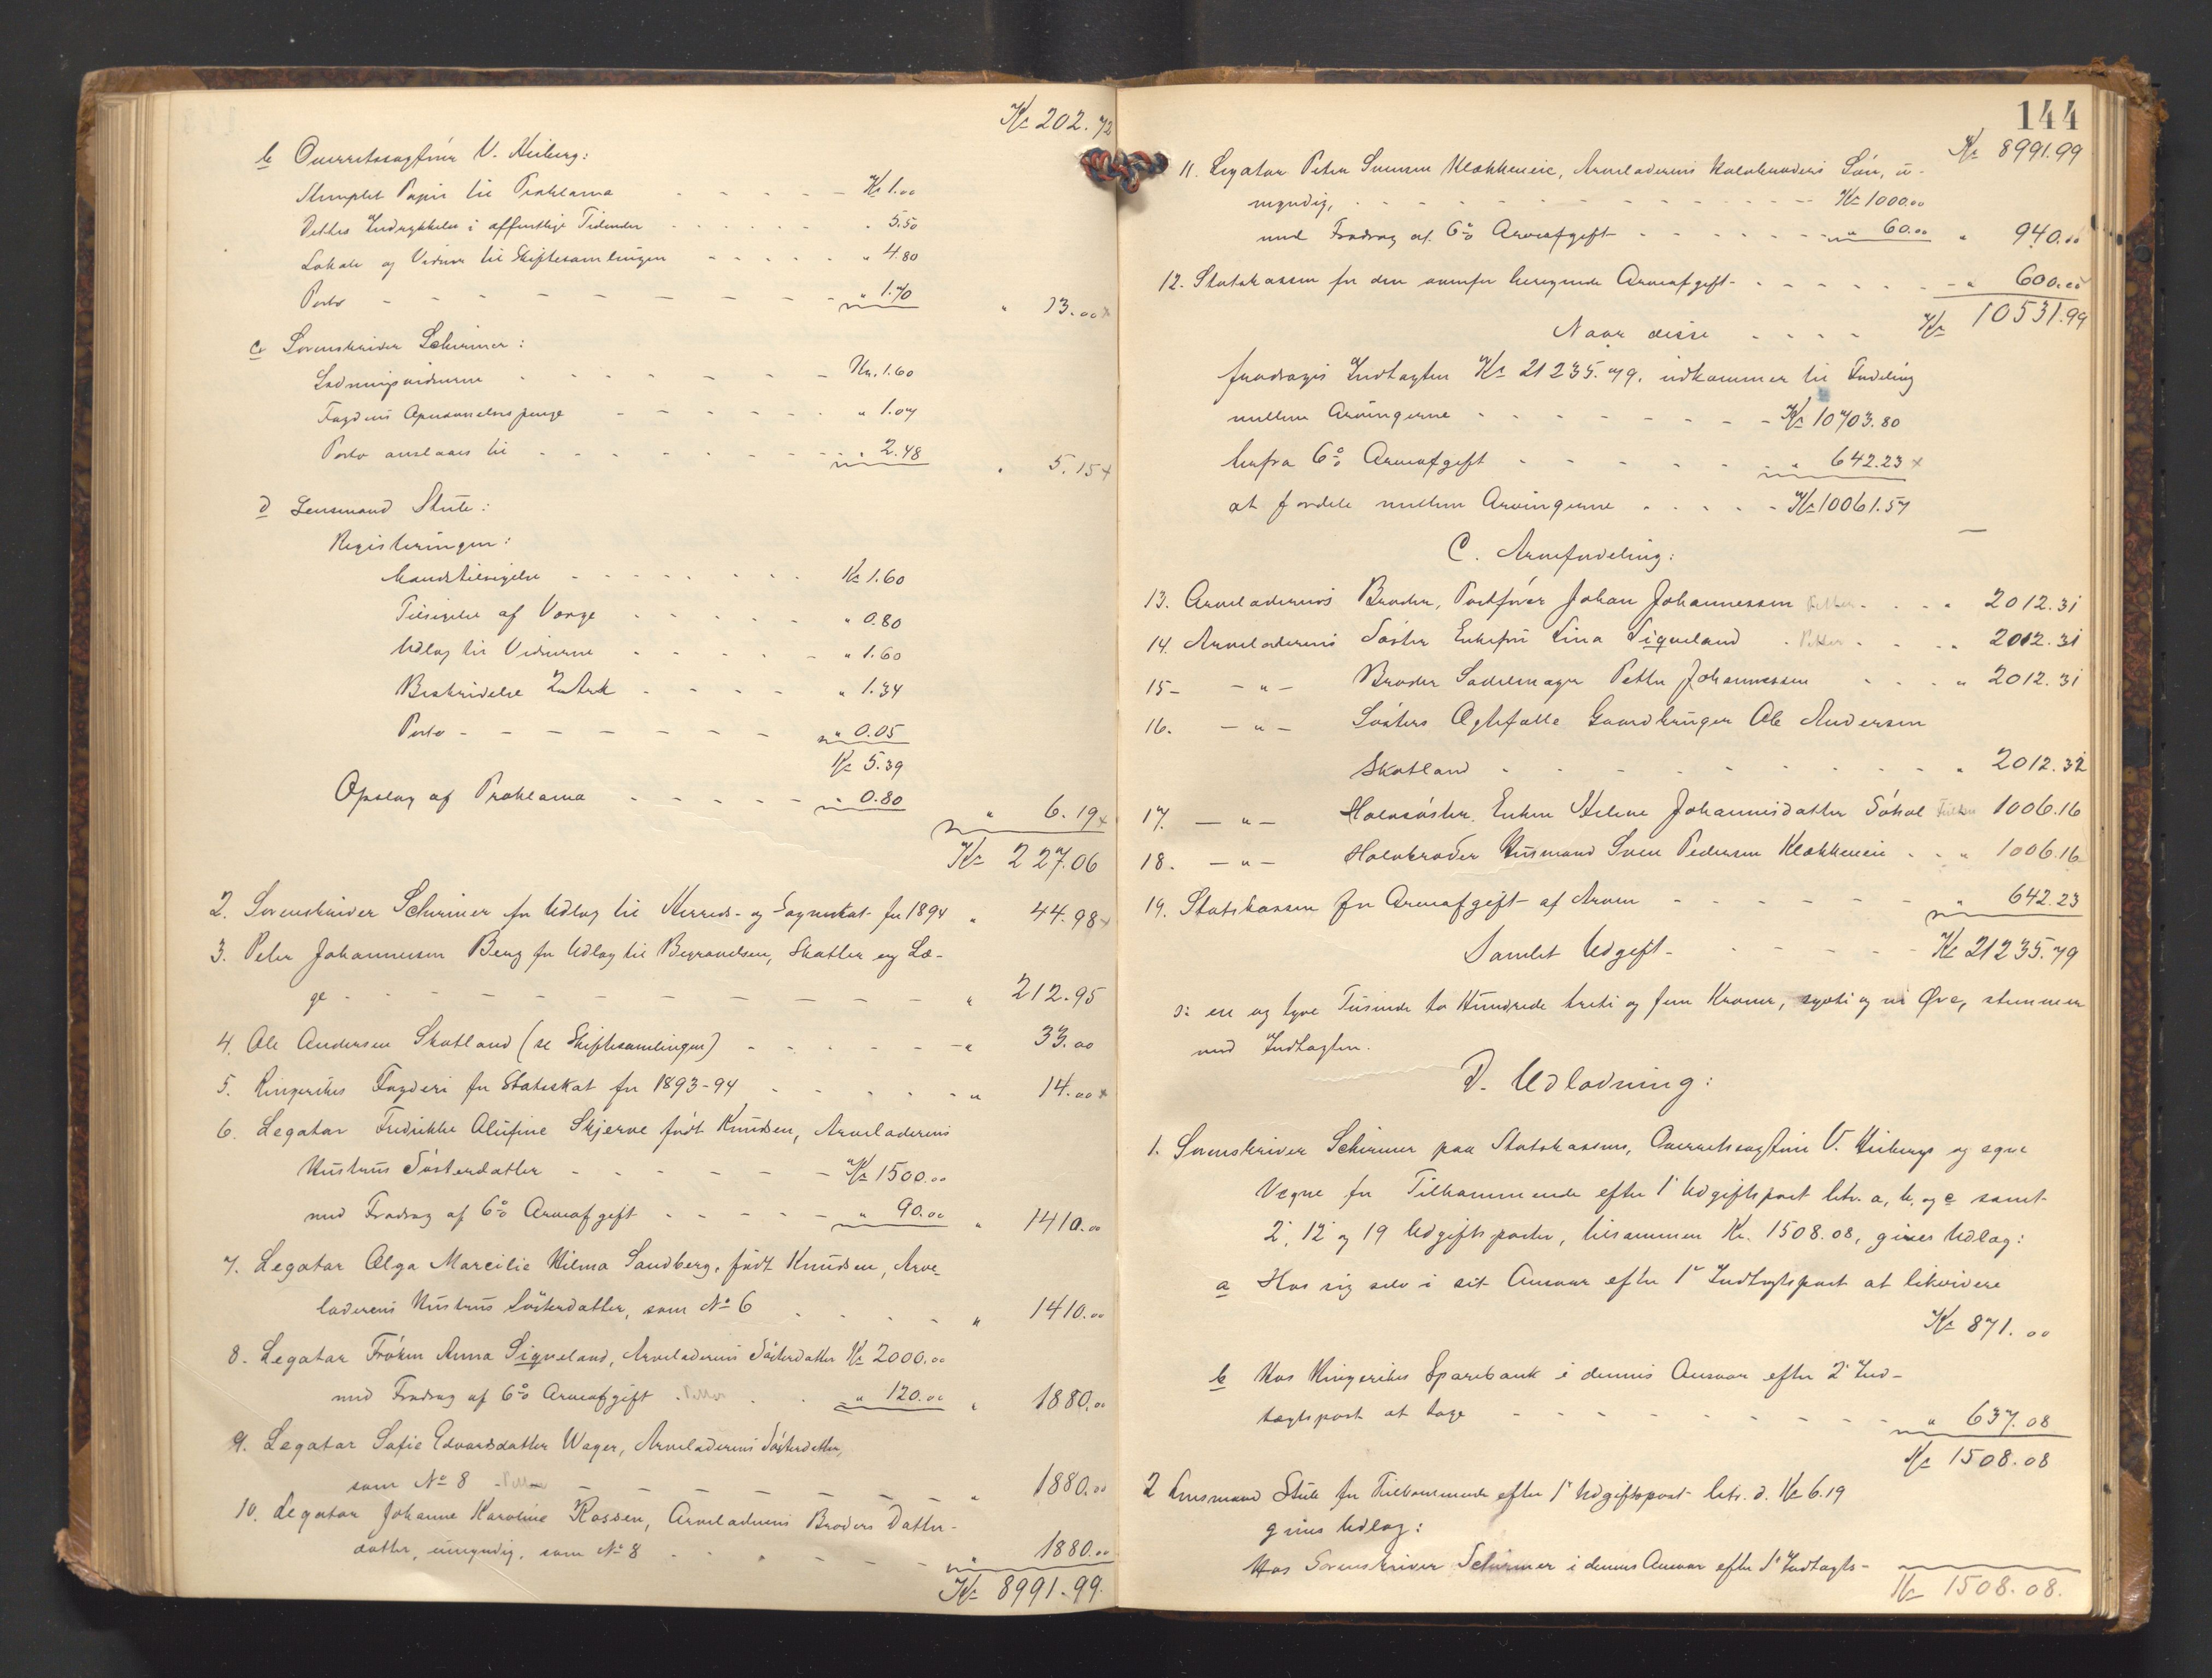 Kr 202.72
b Overretssagfører V. Heiberg:
Stemplet Papir til Proklama - - - - - Kr 1.00
Dettes Indrykkelse i offentlige Tidender . . . . . . " 5.50
Lokale og Vidner til Skiftesamlingen - - - - - " 4.80
Porto - - - - - - - - - " 1.70 " 13.00 x
c Sorenskriver Schirmer:
Lodningsvidnerne - - - - - - - Kr. 1.60
Fogdens Opnævnelsespenge - - - - - - " 1.07
Porto anslaaes til - - - - - - - " 2.48 " 5.15 x
d Lensmand Stute:
Registeringen:
Mandstilsigelse - - - - - - - - Kr 1.60
Tilsigelse af Vorge - - - - - - " 0.80
Udlag til Vidnerne - - - - - - " 1.60
Beskrivelse 2 Ark - - - - - " 1.34
Porto - - - - - - - - " 0.05
Kr 5.39
Opslag af Proklama - - - - - " 0.80 " 6.19 x
Kr 227.06
2. Sorenskriver Schirmer for Udlag til Herreds- og Sogneskat for 1894 " 44.98 x
3. Peter Johannessen Berg for Udlag til Begravelsen, Skatter og Læ-
ge - - - - - - - - - - " 212.95
4. Ole Andersen Skotland (se Skiftesamlingen) - - - - - - " 33.00
5. Ringerikes Fogderi for Statsskat for 1893-94 - - - - - - " 14.00 x
6. Legatar Fredrikke Alufine Skjerve født Knudsen, Arveladerens
Hustrus Søsterdatter - - - - - - Kr 1500.00
med Fradrag af 6% Arveafgift - - - - - " 90.00 " 1410.00
7. Legatar Olga Marcilie Hilma Sandberg, født Knudsen, Arve-
laderens Hustrus Søsterdatter, som No 6 - - - - - " 1410.00
8. Legatar Frøken Anna Siqveland, Arveladerens Søsterdatter Kr 2000.00
med Fradrag af 6% Arveafgift . . . " 120.00 " 1880.00
9. Legatar Sofie Edvardsdatter Wager, Arveladerens Søsterdatter,
som No 8 - - - - - - - " 1880.00
10. Legatar Johanne Karoline Rossen, Arveladerens Broders Datter-
datter, umyndig, som No 8 - - - - - - " 1880.00
Kr 8991.99.
144
Kr 8991.99
11. Legatar Peter Svensen Klækkeneie, Arveladerens Halvbroders Søn, u-
myndig, - - - - - - - - - - Kr 1000.00
med Fradrag af 6% Arveafgift - - - - - - - " 60.00 " 940.00
12. Statskassen for den ovenfor beregnede Arveafgift - - - - - - - " 600.00
Naar disse - - - - Kr 10531.99
fradrages Indtægten Kr 21235.79, udkommer til Fordeling
mellem Arvingerne - - - - - - - - Kr 10703.80
herfra 6% Arveafgift - - - - - - - " 642.23 x
at fordele mellem Arvingerne - - - - - Kr 10061.57
C. Arvefordeling:
13. Arveladerens Broder, Postfører Johan Johannessen - - - " 2012.31
14. Arveladerens Søster Enkefru Lina Siqveland - - - - " 2012.31
15 - - " - Broder Sadelmager Petter Johannessen - - - " 2012.31
16. - " - Søsters Ægtefælle Gaardbruger Ole Andersen
Skotland - - - - - - - - - - " 2012.32
17. - " - Halvsøster, Enken Helene Johannesdatter Søhol 1006.16
18. - " - Halvbroder Husmand Sven Pedersen Klækkeneie - - " 1006.16
19. Statskassen for Arveafgift af Arven - - - - - - - " 642.23
Samlet Udgift - - - - - - Kr 21235.79
ɔ: en og tyve Tusinde to Hundrede treti og fem Kroner, sytti og ni Øre, stemmer
med Indtægten.
D. Udlodning:
1. Sorenskriver Schirmer paa Statskassens, Overretssagfører V. Heibergs og egne
Vegne for Tilkommende efter 1' Udgiftspost litr. a, b, og c samt
2', 12' og 19 Udgiftsposter, tilsammen Kr. 1508.08, gives Udlæg:
a Hos sig selv i sit Ansvar efter 1' Indtægtspost at likvidere
Kr 871.00
b Hos Ringerikes Sparebank i dennes Ansvar efter 2' Ind-
tægtspost at tage - - - - - - - - - " 637.08
Kr 1508.08
2 Lensmand Stute for Tilkommende efter 1' Udgiftspost litr. d. Kr 6.19
gives Udlæg:
Hos Sorenskriver Schirmer i dennes Ansvar efter 1' Indtægts-
Kr 1508.08.